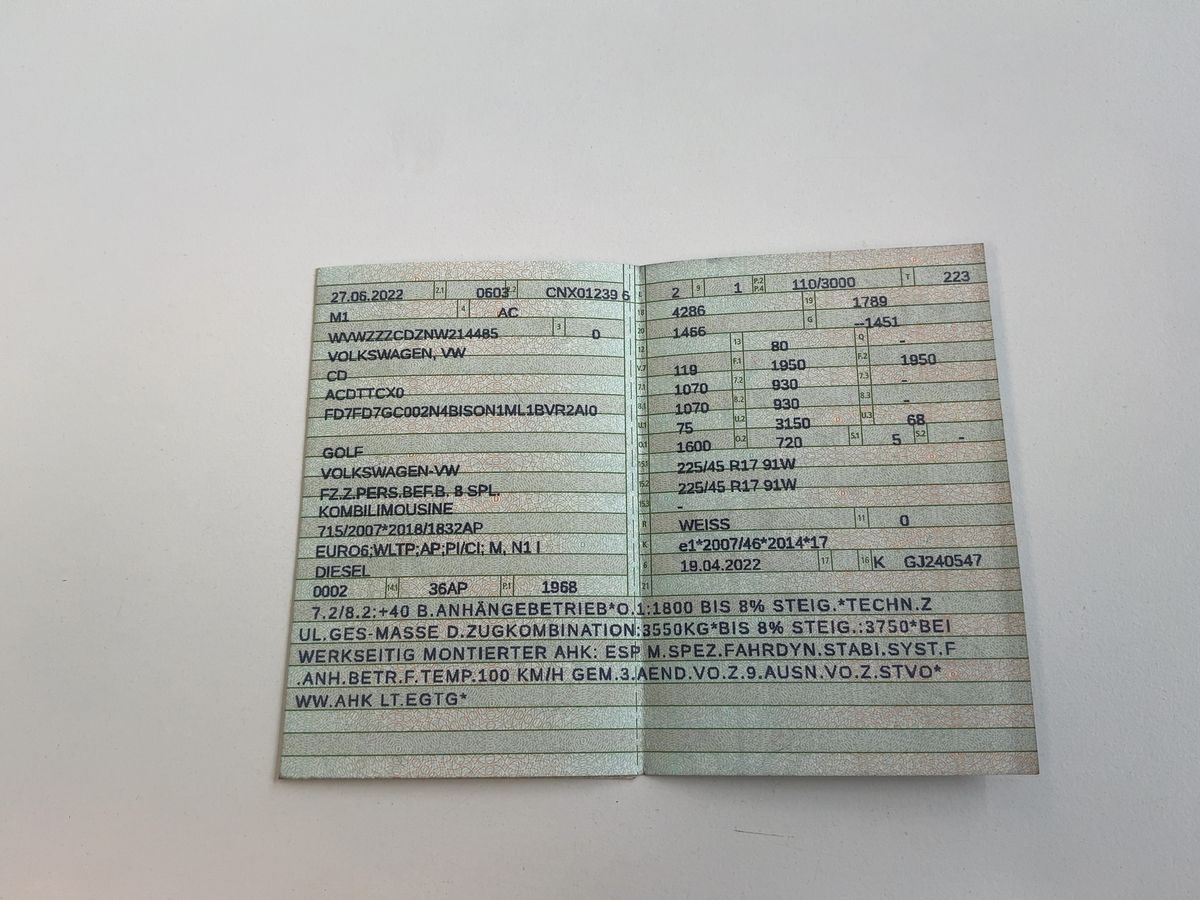 27.06.2022 2.1 0603 2.2 CNX01239 6
M1 4 AC
WVWZZZCDZNW214485 3 0
VOLKSWAGEN, VW
CD
ACDTTCX0
FD7FD7GC002N4BISON1ML1BVR2AI0
GOLF
VOLKSWAGEN-VW
FZ.Z.PERS.BEF.B. 8 SPL.
KOMBILIMOUSINE
715/2007*2018/1832AP
EURO6;WLTP;AP;PI/CI; M, N1 I
DIESEL
0002 14.1 36AP P.1 1968
L 2 9 1 P.2 P.4 110/3000 T 223
18 4286 19 1789
20 1466 G --1451
12 13 80 Q -
V.7 119 F.1 1950 F.2 1950
7.1 1070 7.2 930 7.3 -
8.1 1070 8.2 930 8.3 -
U.1 75 U.2 3150 U.3 68
O.1 1600 O.2 720 S.1 5 S.2 -
15.1 225/45 R17 91W
15.2 225/45 R17 91W
15.3 -
R WEISS 11 0
K e1*2007/46*2014*17
6 19.04.2022 17 16 K GJ240547
21
7.2/8.2:+40 B.ANHÄNGEBETRIEB*O.1:1800 BIS 8% STEIG.*TECHN.Z
UL.GES-MASSE D.ZUGKOMBINATION:3550KG*BIS 8% STEIG.:3750*BEI
WERKSEITIG MONTIERTER AHK: ESP M.SPEZ.FAHRDYN.STABI.SYST.F
.ANH.BETR.F.TEMP.100 KM/H GEM.3.AEND.VO.Z.9.AUSN.VO.Z.STVO*
WW.AHK LT.EGTG*